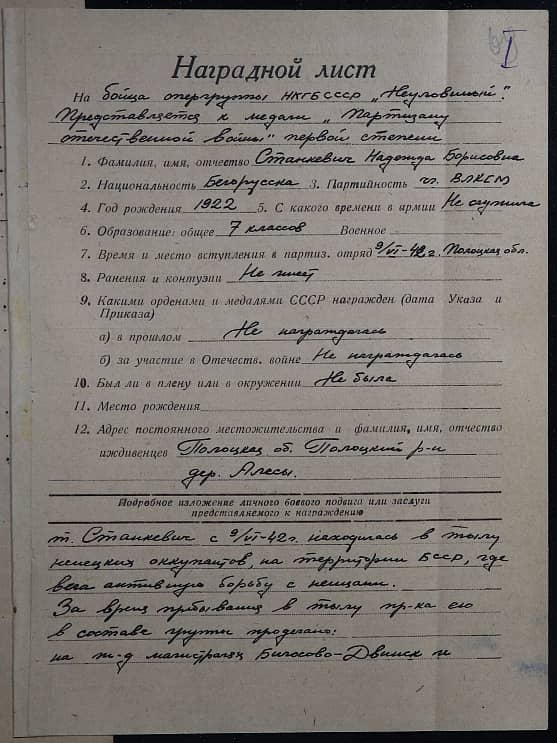 I
Наградной лист
На бойца опергруппы НКГБ СССР „Неуловимый".
Представляется к медали „Партизану
отечественной войны" первой степени
1. Фамилия, имя, отчество Станкевич Надежда Борисовна
2. Национальность Белорусска 3. Партийность чл. ВЛКСМ
4. Год рождения 1922 5. С какого времени в армии Не служила
6. Образование: общее 7 классов Военное
7. Время и место вступления в партиз. отряд 9/VI-42г. Полоцкая обл.
8. Ранения и контузии Не имеет
9. Какими орденами и медалями СССР награжден (дата Указа и
Приказа)
а) в прошлом Не награждалась
б) за участие в Отечеств. войне Не награждалась
10. Был ли в плену или в окружении Не была
11. Место рождения
12. Адрес постоянного местожительства и фамилия, имя, отчество
иждивенцев Полоцкая об. Полоцкий р-н
дер.
Подробное изложение личного боевого подвига или заслуги
представляемого к награждению
т. Станкевич с 9/VI-42г. находилась в тылу
немецких оккупантов, на территории БССР, где
вела активную борьбу с немцами.
За время пребывания в тылу пр-ка ею
в составе группы проделано:
на ж-д магистралях Бигосово-Двинск и